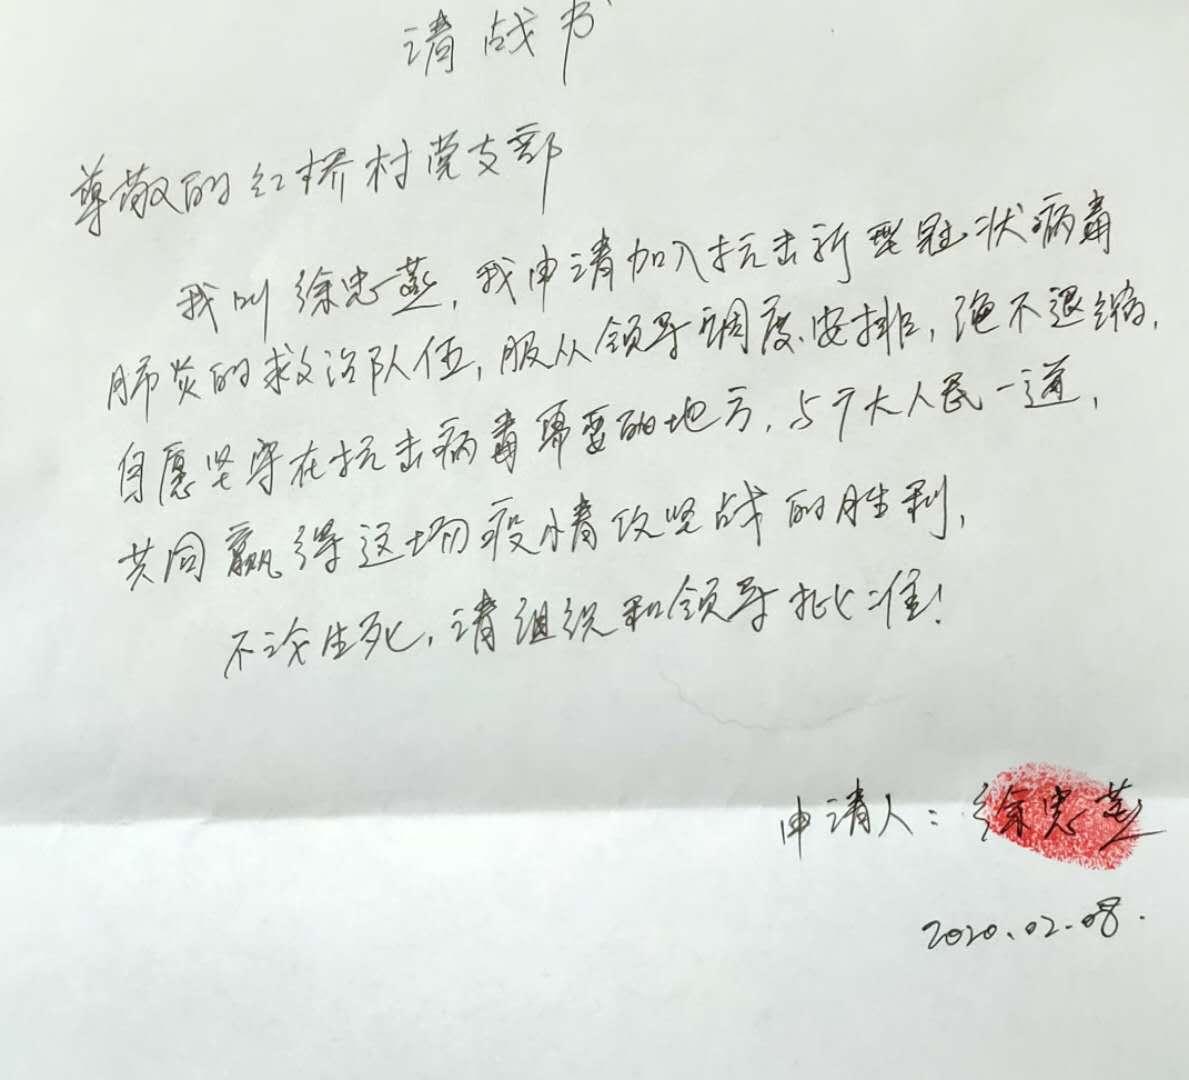 请战书
尊敬的红桥村党支部
我叫徐忠燕，我申请加入抗击新型冠状病毒
肺炎的救治队伍，服从领导调度、安排，绝不退缩，
自愿坚守在抗击病毒需要的地方，与广大人民一道，
共同赢得这场疫情攻坚战的胜利，
不论生死，请组织和领导批准！
申请人：徐忠燕
2020.02.08.